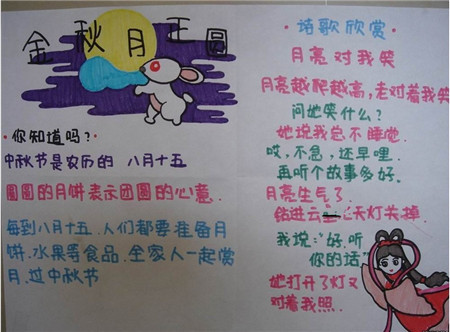 金秋月正圆
·你知道吗？·
中秋节是农历的 八月十五
圆圆的月饼表示团圆的心意.
每到八月十五.人们都要准备月
饼.水果等食品.全家人一起赏
月.过中秋节
诗歌欣赏
月亮对我笑
月亮越爬越高,老对着我笑
问她笑什么?
她说我总不睡觉.
哎,不急,还早哩.
再听个故事多好.
月亮生气了.
钻进云 天灯关掉.
我说:"好.听
你的话.
她打开了灯又
对着我照.